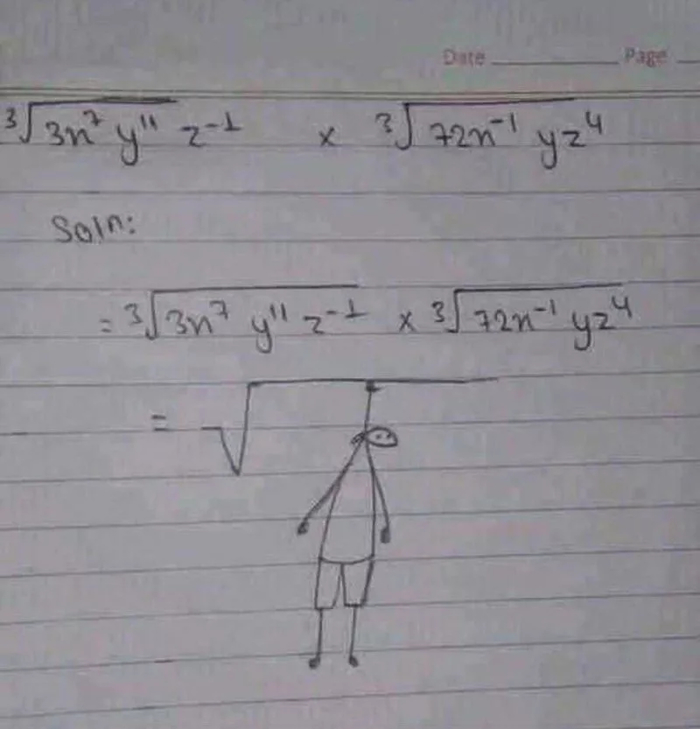 Date ________ Page __
∛(3n⁷ y¹¹ z⁻¹) × ∛(72n⁻¹ yz⁴)
Soln:
= ∛(3n⁷ y¹¹ z⁻¹) × ∛(72n⁻¹ yz⁴)
= √